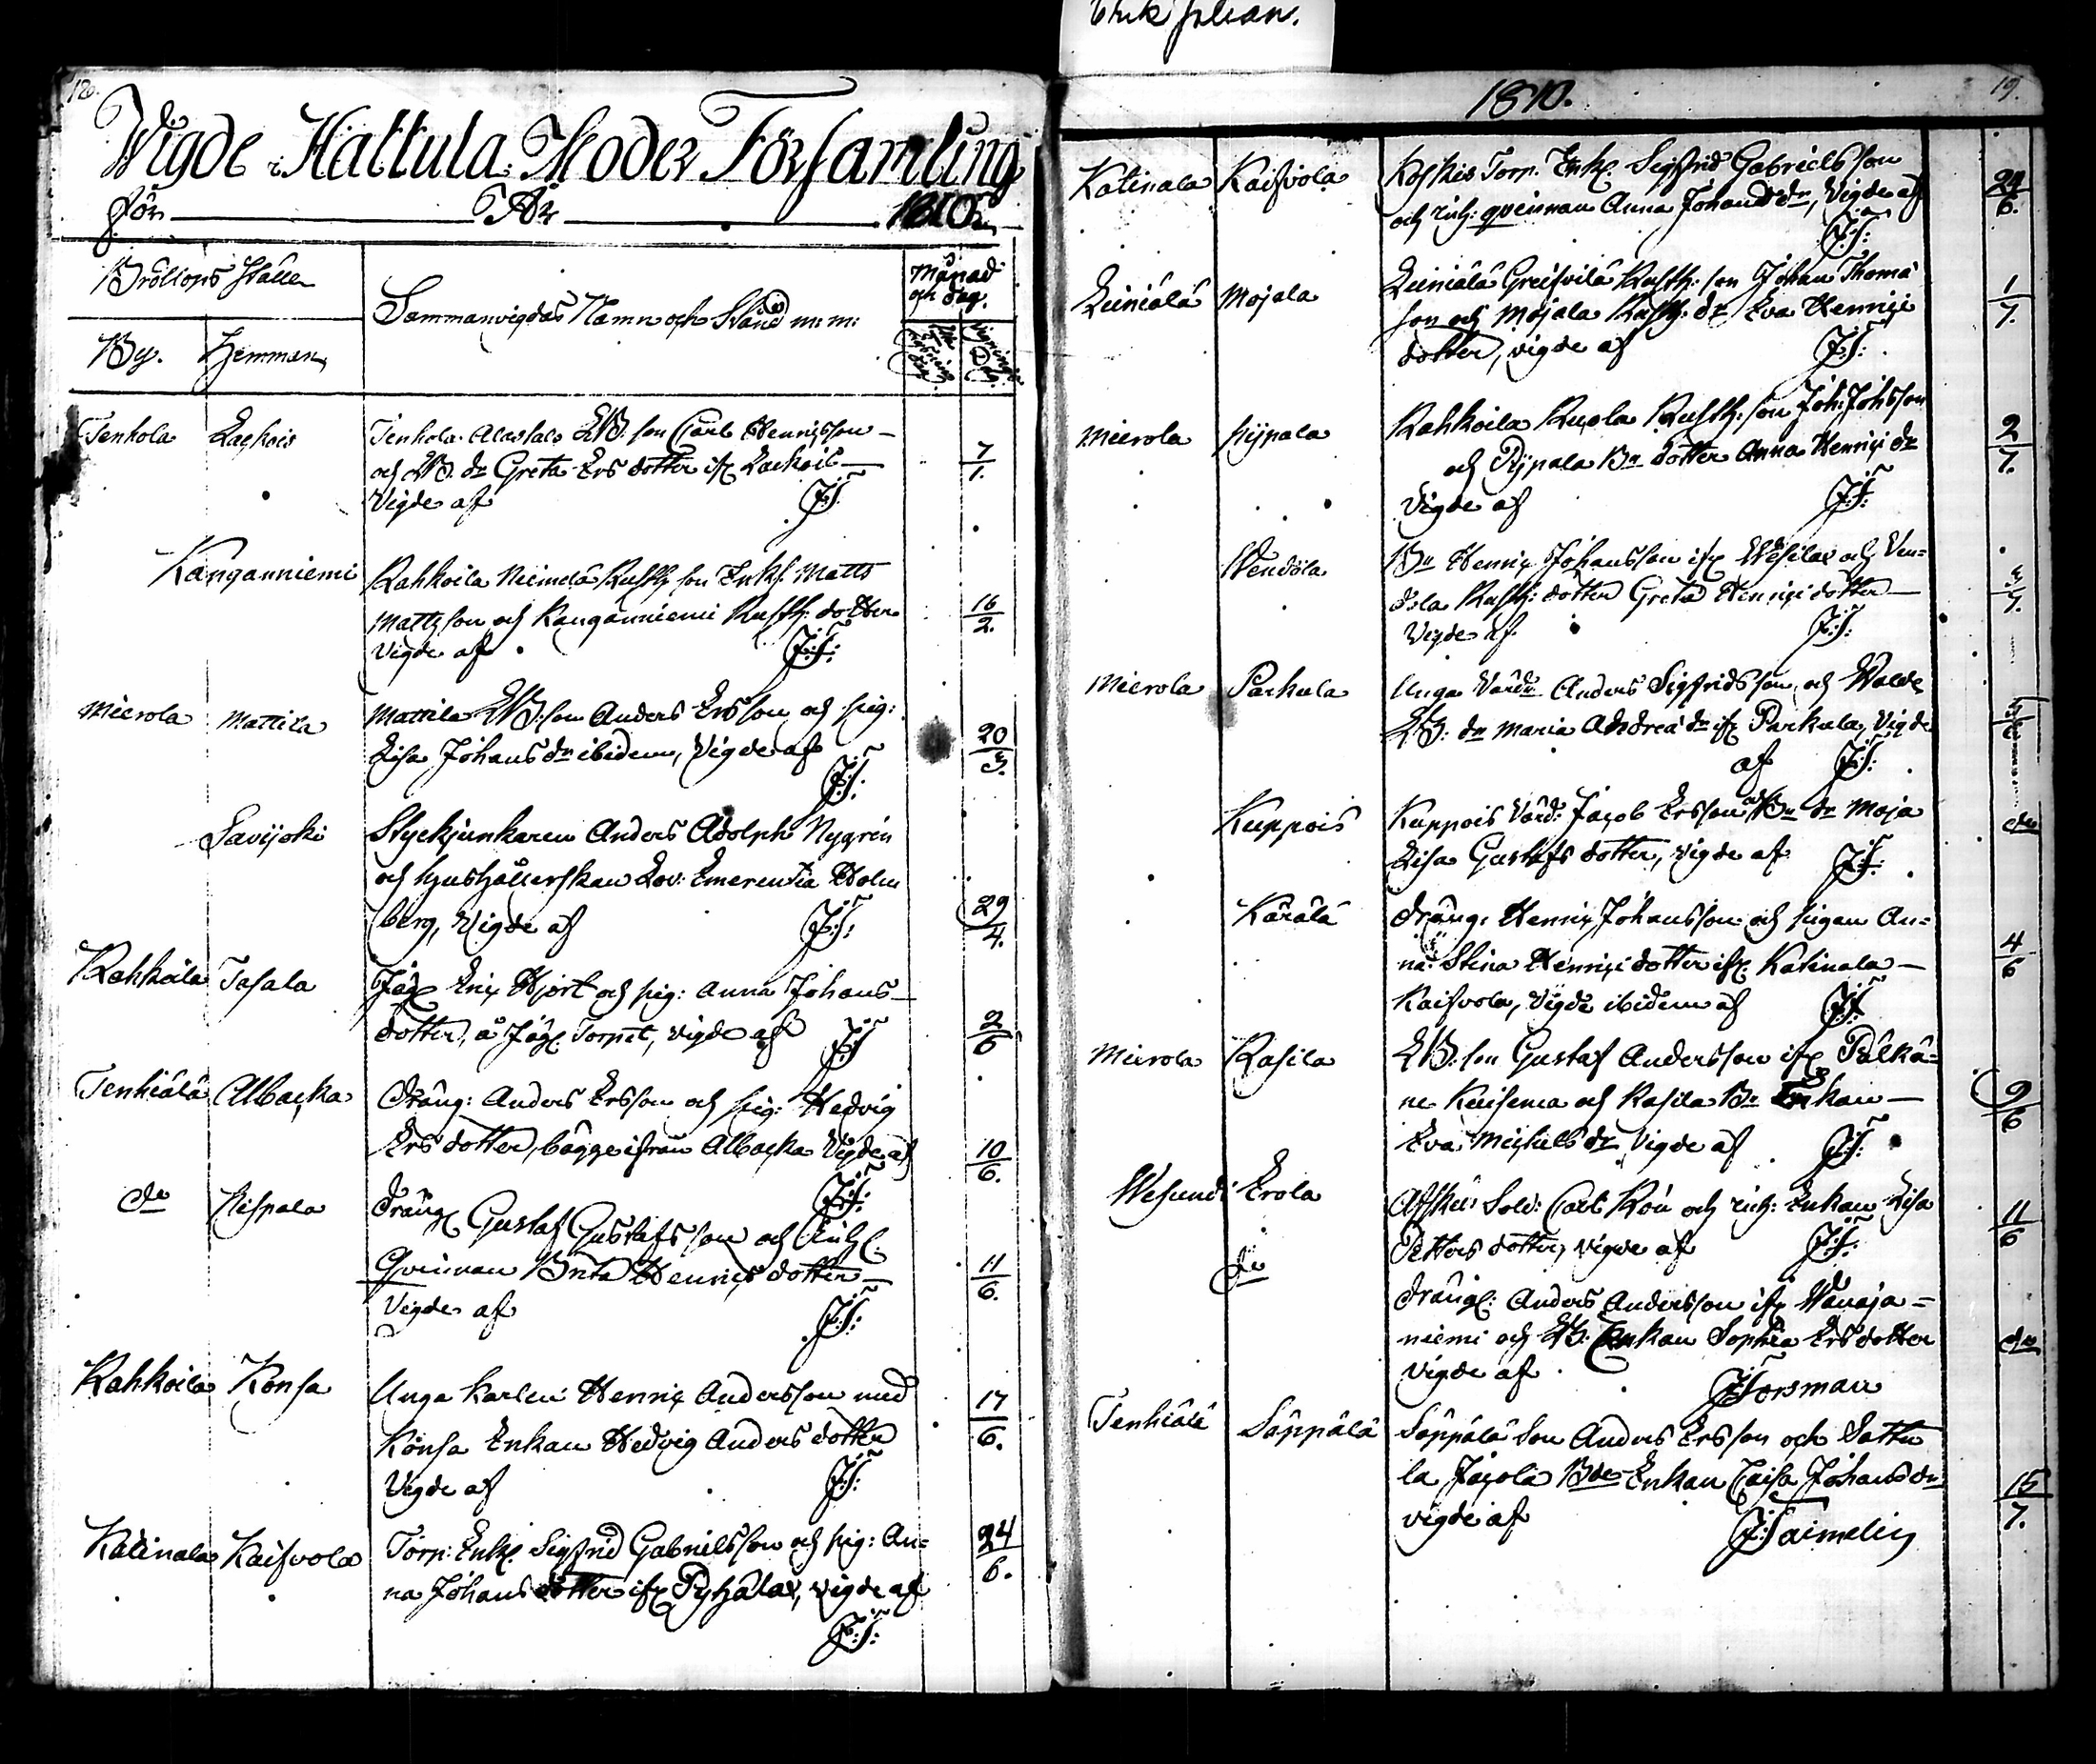 Erik Johan.
18.
Wigde i Hattula Moder Församling
för År 1810.
Bröllops Ställe
Sammanvigdas Namn och Stånd m: m:
Månad och dag.
By. Hemman
Tenhola Lackois Tenhola Alastalo LB. son Carl Henricsson
och LB. dr Greta Ers dotter ifr. Lackois 7/1.
Vigde af J:F:
Kanganniemi Rahkoila Niemelä Rusth. son Enkl. Matts
Mattsson och Kanganniemi Rusth: dotter 16/2.
Vigde af J:F:
Mierola Mattila Mattila LB: son Anders Ersson och pig:
Lisa Johans dr ibidem, Vigde af 20/3.
J:F:
Savijoki Styckjunkaren Anders Adolph Nygrén
och hushållerskan Lov: Emerentia Holm
berg, Vigde af J:F: 29/4.
Rahkoila Tasala Jäg. Eric Hjort och pig: Anna Johans
dotter, å Jäg. Torpet, vigde af J:F 2/6
Tenhiälä Albacka Dräng: Anders Ersson och pig: Hedvig
Ers dotter, bägge ifrån Albacka Vigde af 10/6.
J:F:
do Rispala Dräng Gustaf Gustafsson och
Qvinnan Brita Henrics dotter 11/6.
Vigde af J:F:
Rahkoila Konsa Unga Karlen Henric Andersson med 17/6.
Konsa Enkan Hedvig Anders dotter
Vigde af J:F:
Katinala Kaisvola Torp: Enkl. Sigfrid Gabrielsson och pig: An= 24/6.
na Johans dotter ifr. Pyhälä, vigde af
J:F:
1810. 19.
Katinala Kaisvola Koskis Torp. Enkl. Sigfrid Gabriels son 24/6.
och qvinnan Anna Johans dr, Vigde af
J:F:
Leiniälä Mojala Leiniälä Greisvilä Rusth: son Johan Thoma 1/7.
son och Mojala Rusth. dr Eva Henrici
dotter, vigde af J:F:
Mierola Pijpala Rahkoila Ruola Rusth: son Joh: Johsson 2/7.
och Pijpala Bn dotter Anna Henrici dr
Vigde af J:F:
Wendola Bn Henric Johansson ifr. Wesilax och Ven=
dola Rusth: dotter Greta Henrici dotter 3/7.
Vigde af J:F:
Mierola Parkula Unga Anders Sigfridsson och
LB: dr Maria Andreæ dr ifr. Parkula, Vigde
af J:F:
Kuppois Kuppois Värd: Jacob Ersson och Bn dr Maja do
Lisa Gustafs dotter, vigde af J:F:
Kärälä Dräng. Henric Johansson och pigan An=
na: Stina Henrici dotter ifr. Katinala 4/6
Kaisvola, Vigde ibidem af J:F:
Mierola Rasila LB: son Gustaf Andersson ifr. Pälkä=
ne och Rasila Bn Enkan 9/6
Eva Michels dr Vigde af J:F:
Wesunda Erola Afsked: Sold: Carl Rön och Enkan Lisa 11/6
Petters dotter, vigde af J:F:
do Drängl: Anders Andersson ifr. Wanaja=
niemi och LB: Enkan Sophia Ers dotter do
vigde af J:Forsman
Tenhiälä Säppälä Säppälä Son Anders Ersson och Sattu
la Jacola Bdr Enkan Caisa Johans dr 15/7.
vigde af J:Taimelin